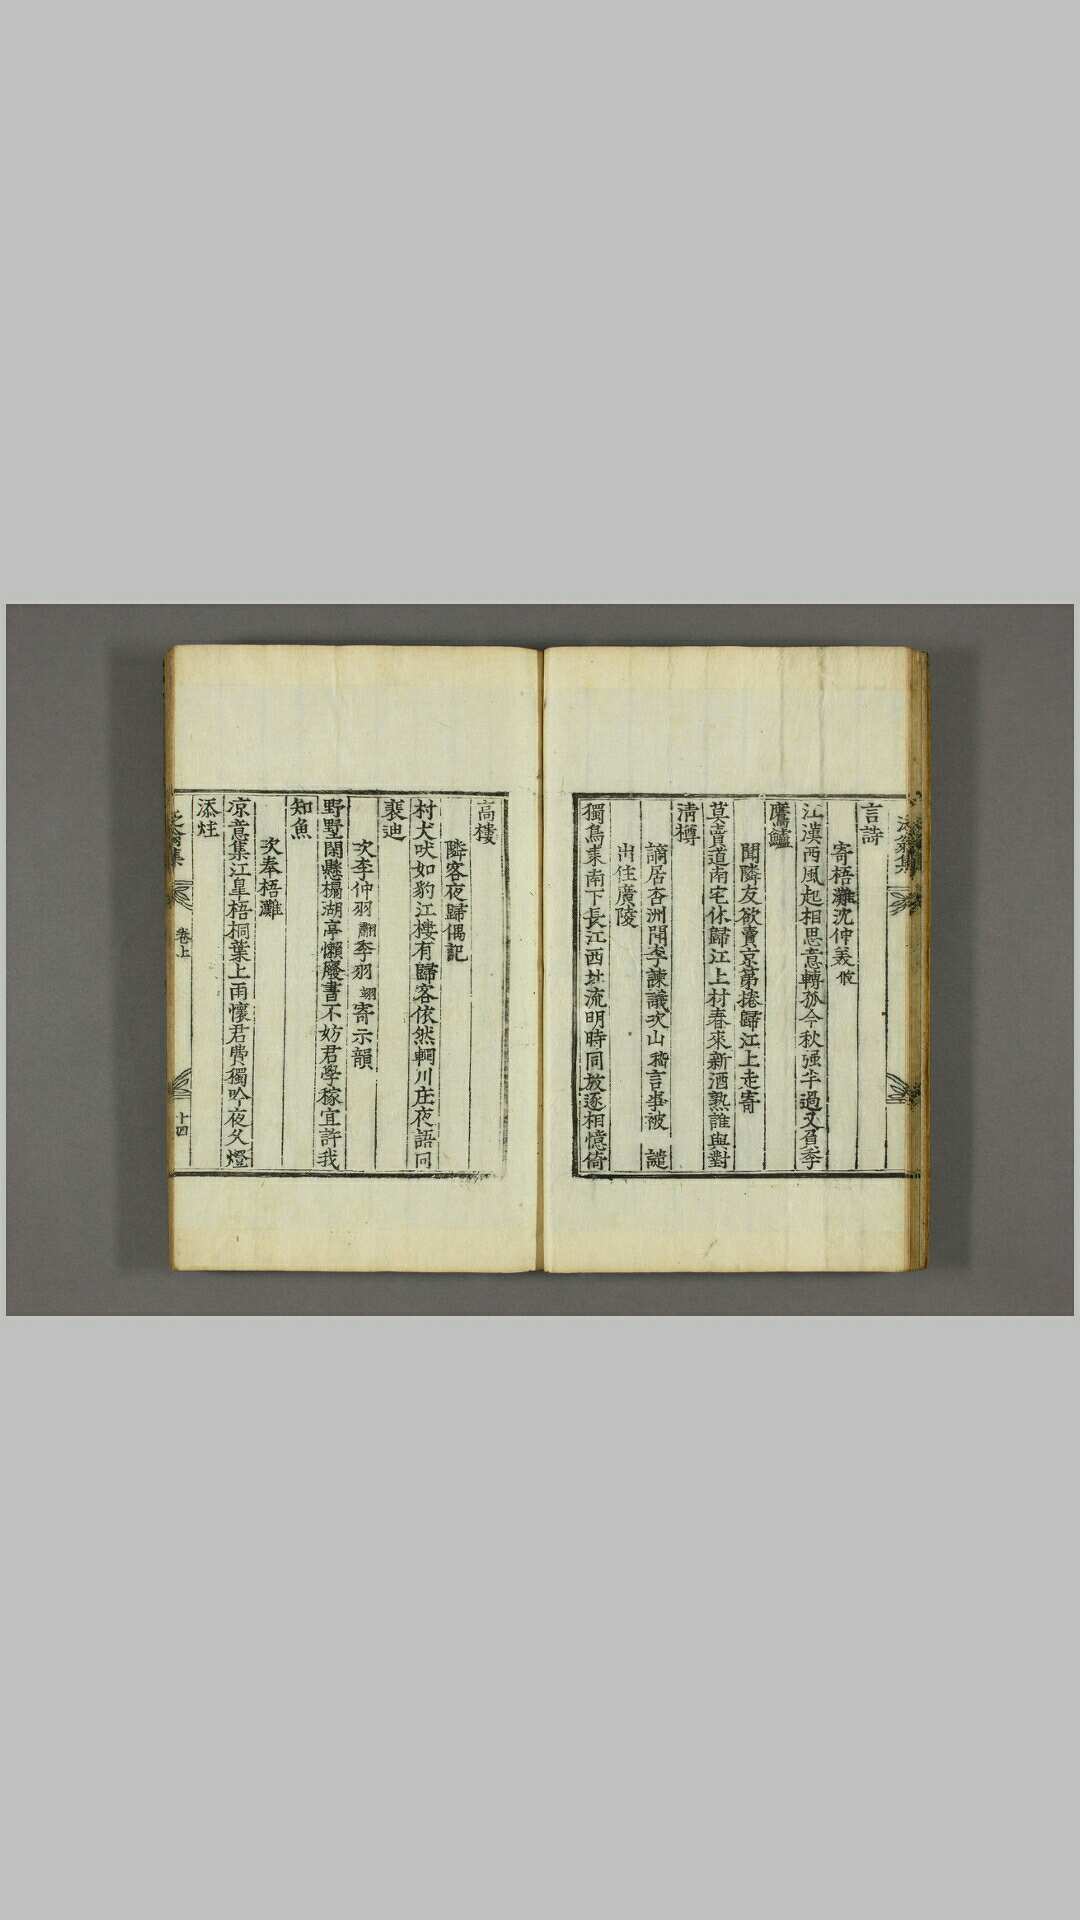 言詩
寄梧灘沈仲羲攸
江漢西風起相思意轉孤今秋强半過又負季
鷹鱸
聞隣友欲賣京第捲歸江上走寄
莫賣道南宅休歸江上村春來新酒熟誰與對
淸樽
謫居杏洲聞李諫議次山稽言事被 譴
出住廣陵
獨鳥東南下長江西北流明時同放逐相憶倚
高樓
隣客夜歸偶記
村犬吠如豹江樓有歸客依然輞川庄夜語同
裴迪
次李仲羽翻季羽翊寄示韻
野墅閑懸榻湖亭懶廢書不妨君學稼宜許我
知魚
次奉梧灘
凉意集江皐梧桐葉上雨懷君費獨吟夜久燈
添炷
卷上
十四